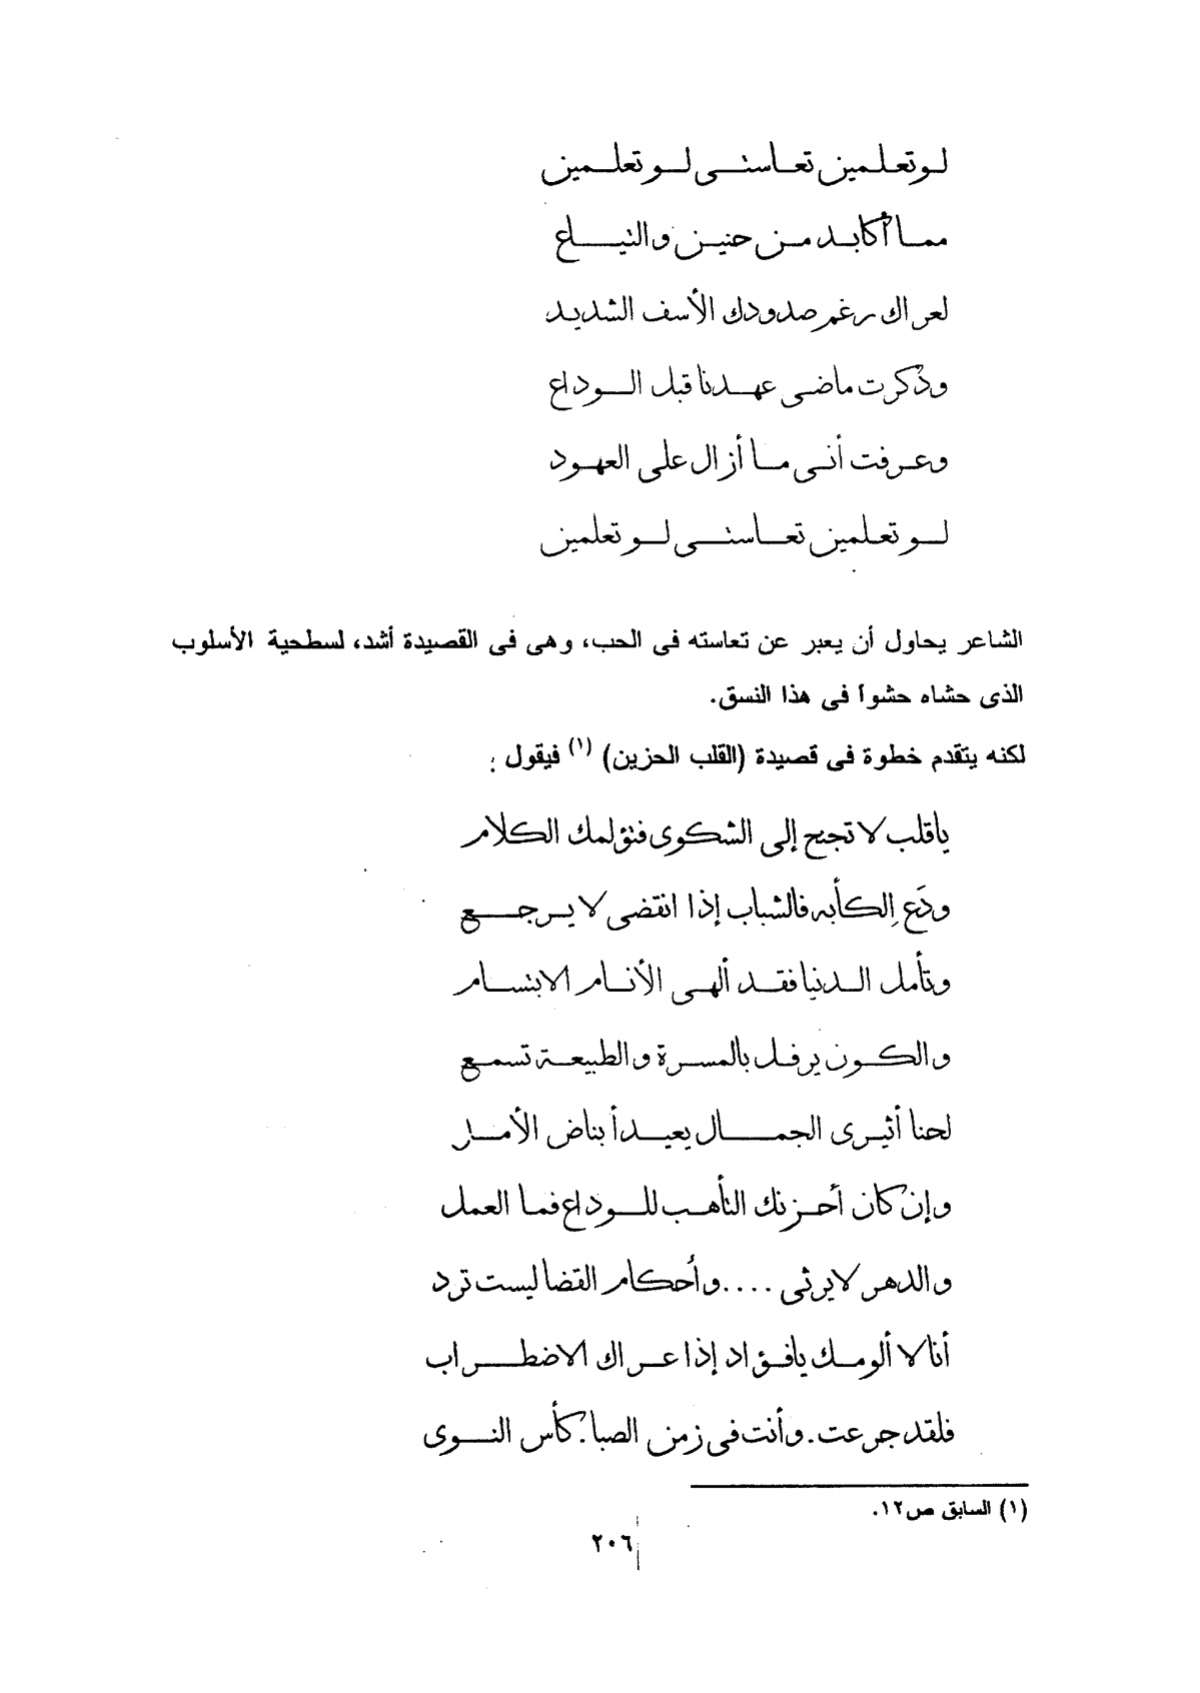 لو تعلمين تعاستى لو تعلمين
مما أكابد من حنين والتياع
لعراك رغم صدودك الأسف الشديد
وذكرت ماضى عهدنا قبل الوداع
وعرفت أنى ما أزال على العهود
لو تعلمين تعاستى لو تعلمين
الشاعر يحاول أن يعبر عن تعاسته فى الحب، وهى فى القصيدة أشد، لسطحية الأسلوب
الذى حشاه حشواً فى هذا النسق.
لكنه يتقدم خطوة فى قصيدة (القلب الحزين) (١) فيقول :
ياقلب لا تجنح إلى الشكوى فتؤلمك الكلام
ودَع الكأبه فالشباب إذا انقضى لا يرجع
وتأمل الدنيا فقد ألهى الأنام الابتسام
والكون يرفل بالمسرة والطبيعة تسمع
لحنا أثيرى الجمال يعيد أبناض الأمل
وإن كان أحزنك التأهب للوداع فما العمل
والدهر لا يرثى .... وأحكام القضا ليست ترد
أنا لا ألومك يافؤاد إذا عراك الاضطراب
فلقد جرعت. وأنت فى زمن الصبا. كأس النوى
(١) السابق ص١٢.
٢٠٦